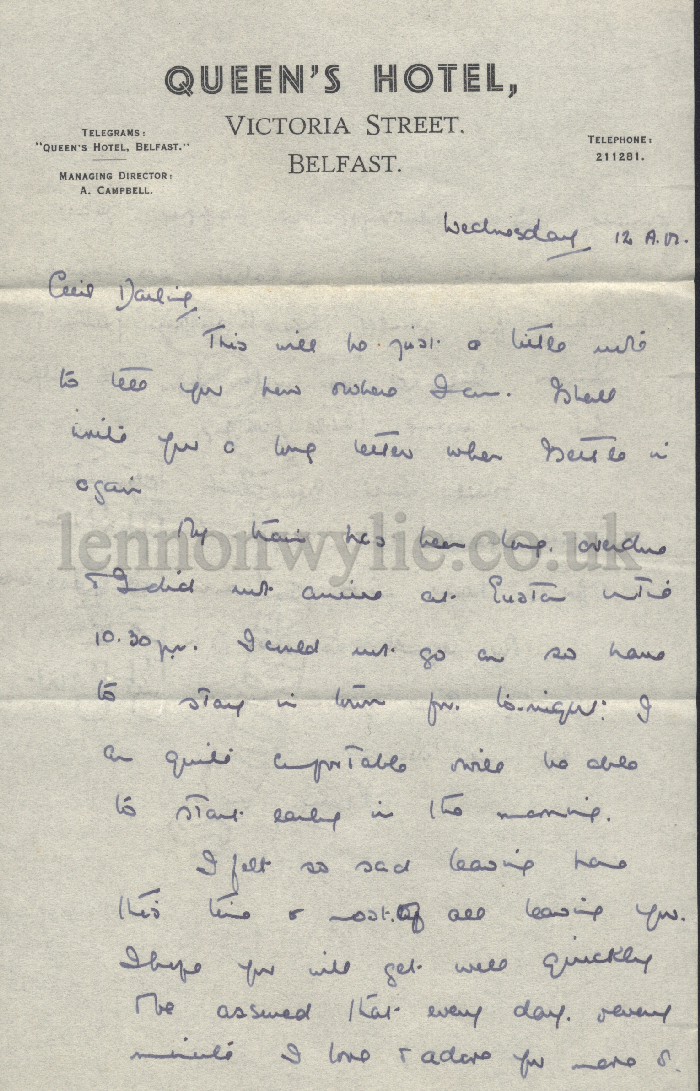 QUEEN'S HOTEL,
VICTORIA STREET.
BELFAST.
TELEGRAMS:
"QUEEN'S HOTEL, BELFAST."
MANAGING DIRECTOR:
A. CAMPBELL.
TELEPHONE:
211281.
Wednesday 12 A.M.
Cecil Darling,
This will be just a little note
to tell you how & where I am. I shall
write you a long letter when I settle in
again
My train has been long overdue
& I did not arrive at Euston until
10.30 p.m. I could not go on so have
to stay in town for to-night: I
am quite comfortable & will be able
to start early in the morning.
I felt so sad leaving home
this time & most of all leaving you.
I hope you will get well quickly
& be assured that every day & every
minute I love & adore you more &
lennonwylie.co.uk